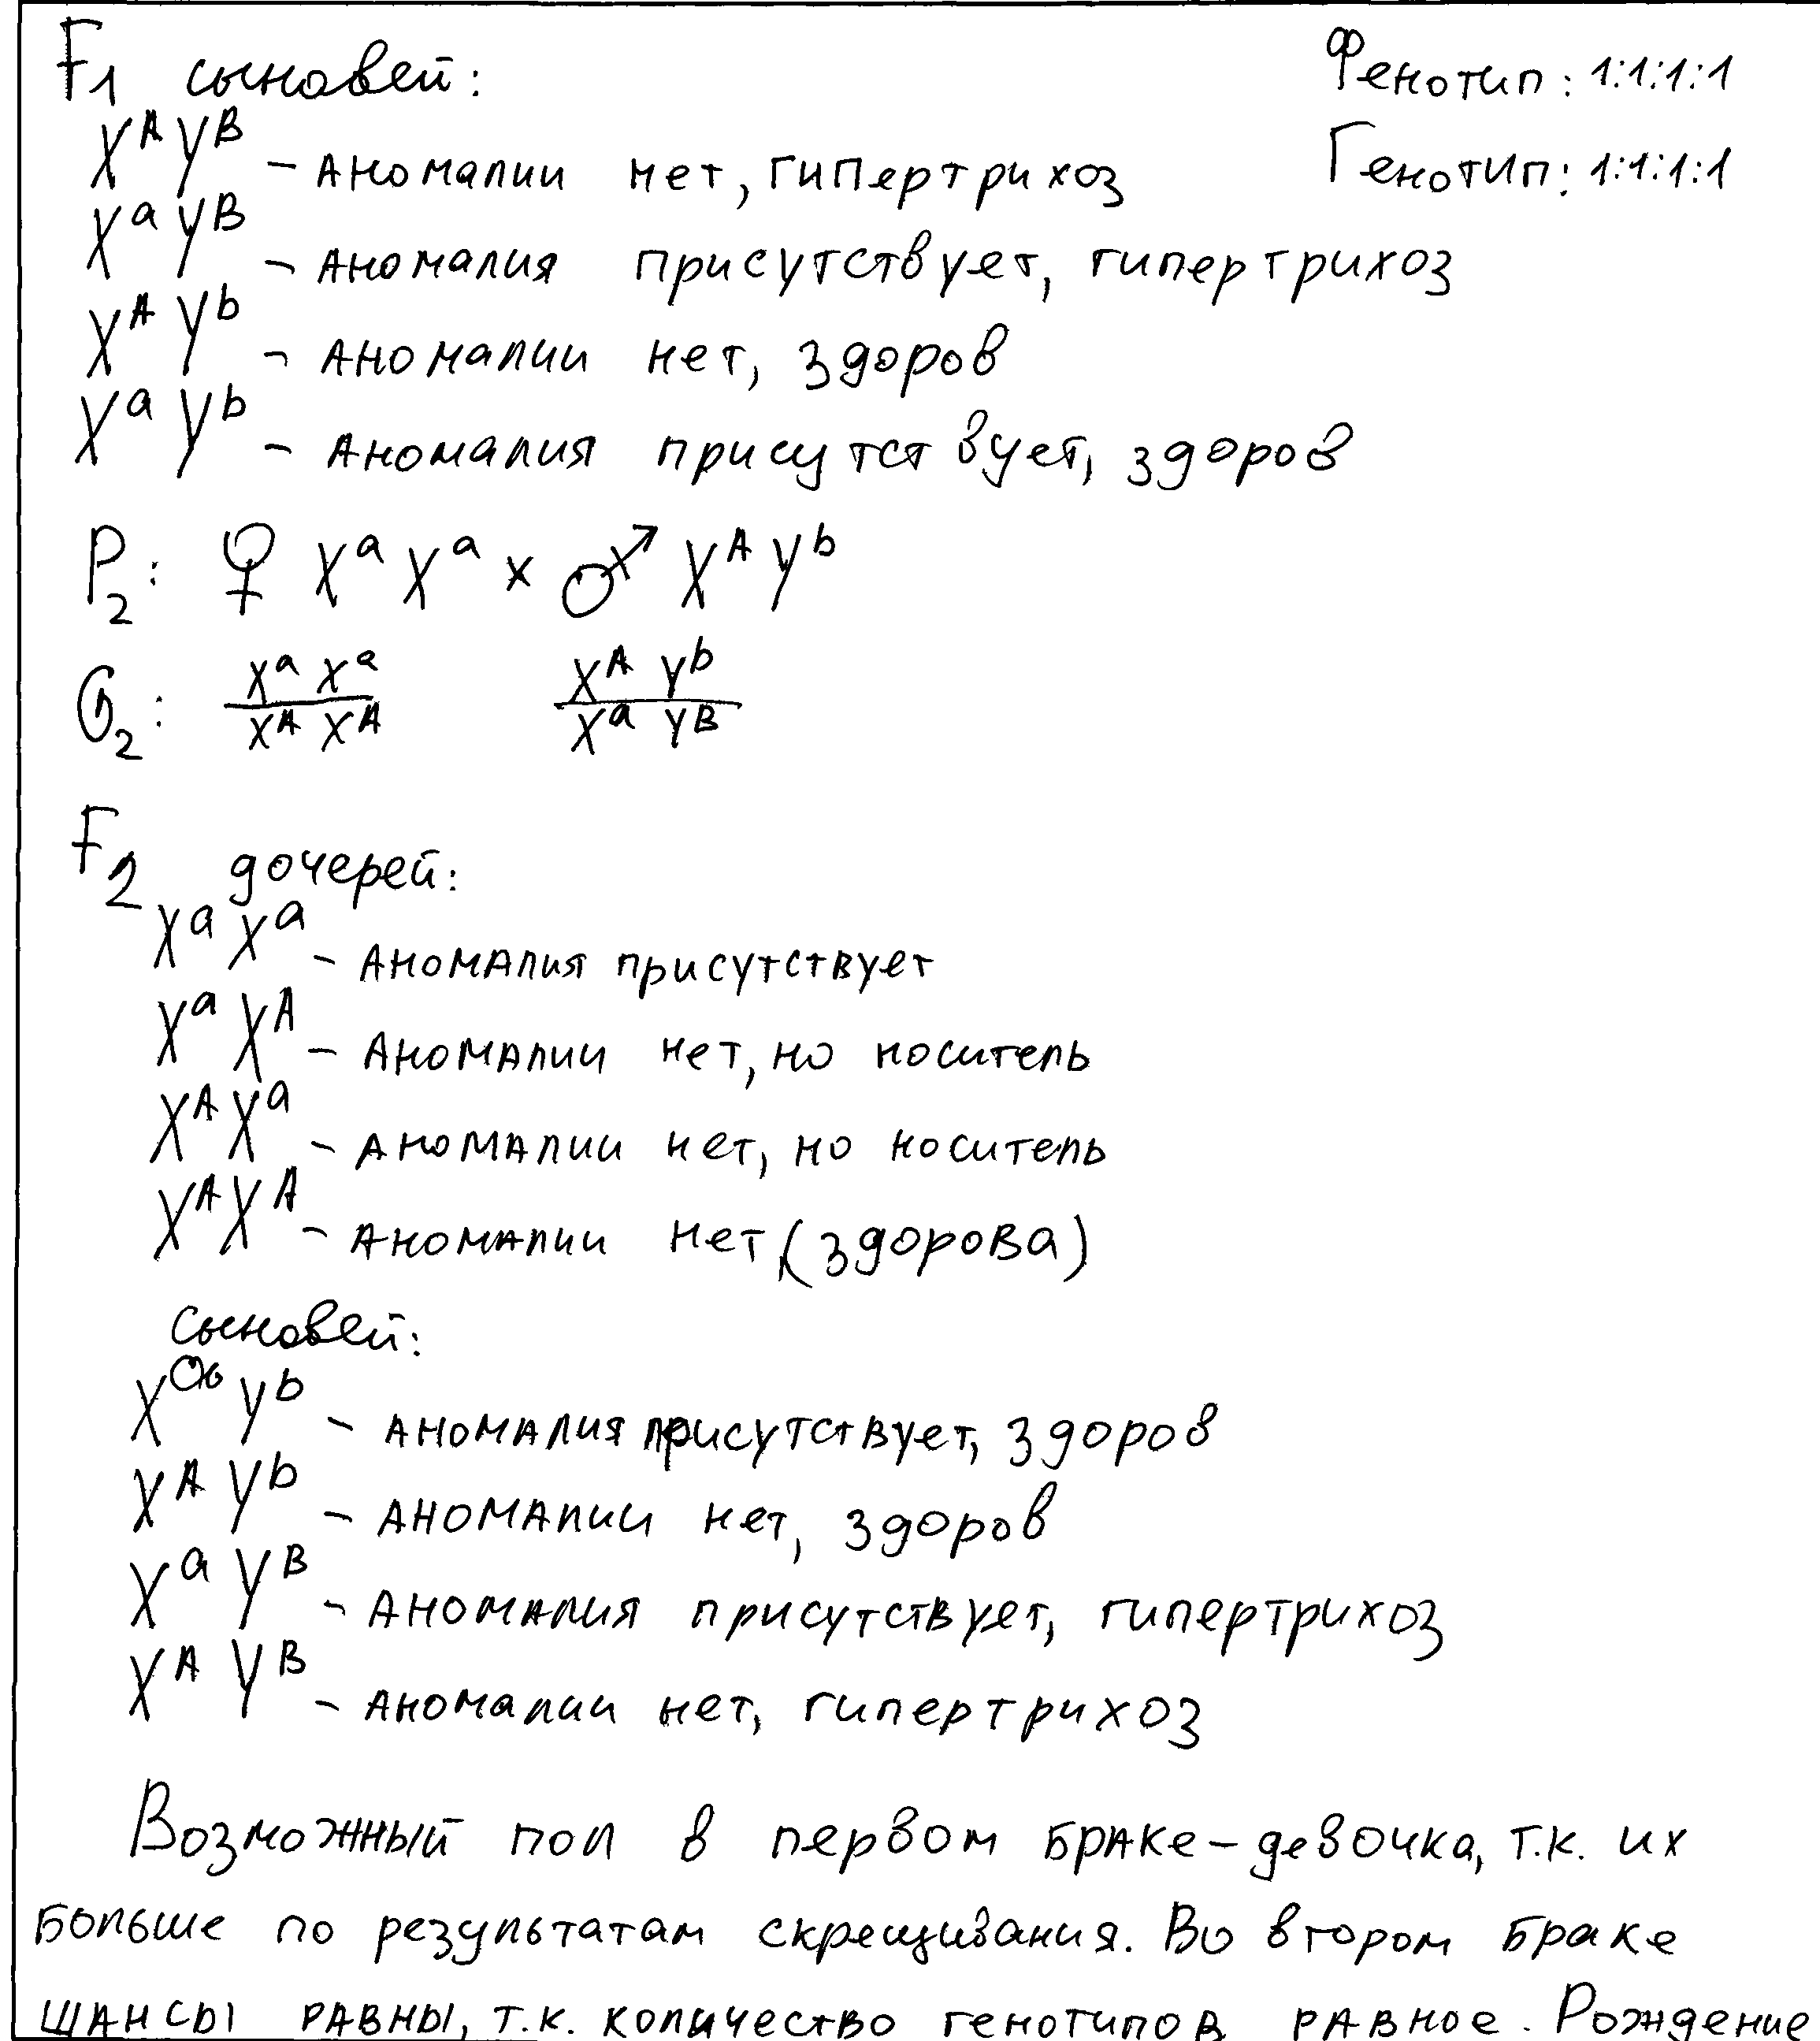 F1 сыновей:
Фенотип: 1:1:1:1
X^A Y^B – аномалии нет, гипертрихоз
Генотип: 1:1:1:1
X^a Y^B – аномалия присутствует, гипертрихоз
X^A Y^b – аномалии нет, здоров
X^a Y^b – аномалия присутствует, здоров
P2: ♀ X^a X^a × ♂ X^A Y^b
G2: X^a X^a X^A Y^b
X^A X^A X^a Y^B
F2 дочерей:
X^a X^a – аномалия присутствует
X^a X^A – аномалии нет, но носитель
X^A X^a – аномалии нет, но носитель
X^A X^A – аномалии нет (здорова)
сыновей:
X^a Y^b – аномалия присутствует, здоров
X^A Y^b – аномалии нет, здоров
X^a Y^B – аномалия присутствует, гипертрихоз
X^A Y^B – аномалии нет, гипертрихоз
Возможный пол в первом браке – девочка, т.к. их
больше по результатам скрещивания. Во втором браке
шансы равны, т.к. количество генотипов равное. Рождение